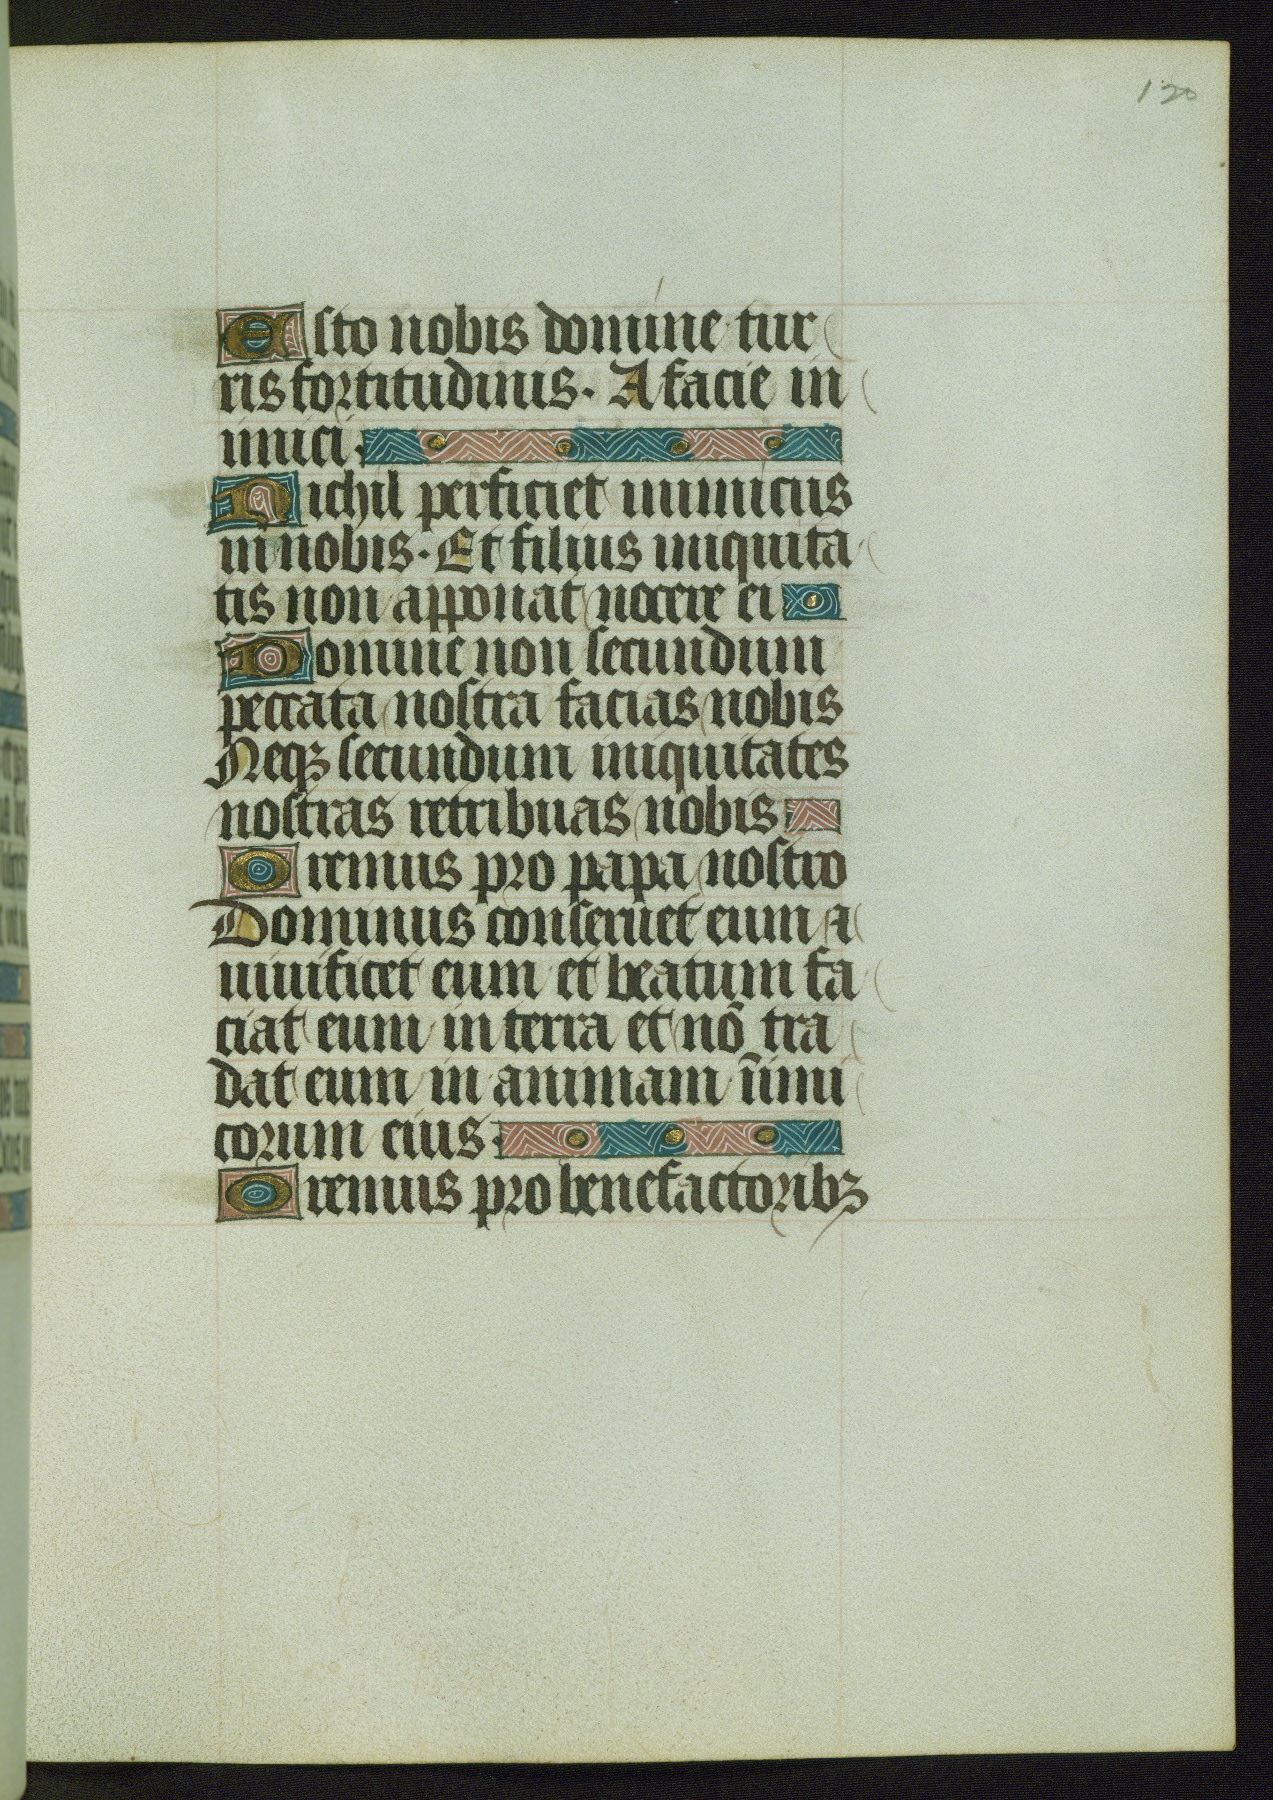 120
Esto nobis domine tur
ris fortitudinis. A facie in
imici.
Nichil perficiet inimicus
in nobis. Et filius iniquita
tis non apponat nocere ei
Domine non secundum
peccata nostra facias nobis
Neqꝫ secundum iniquitates
nostras retribuas nobis
Oremus pro papa nostro
Dominus conseruet eum
uiuificet eum et beatum fa
ciat eum in terra et nō tra
dat eum in animam īimi
corum eius.
Oremus pro benefactoribꝫ